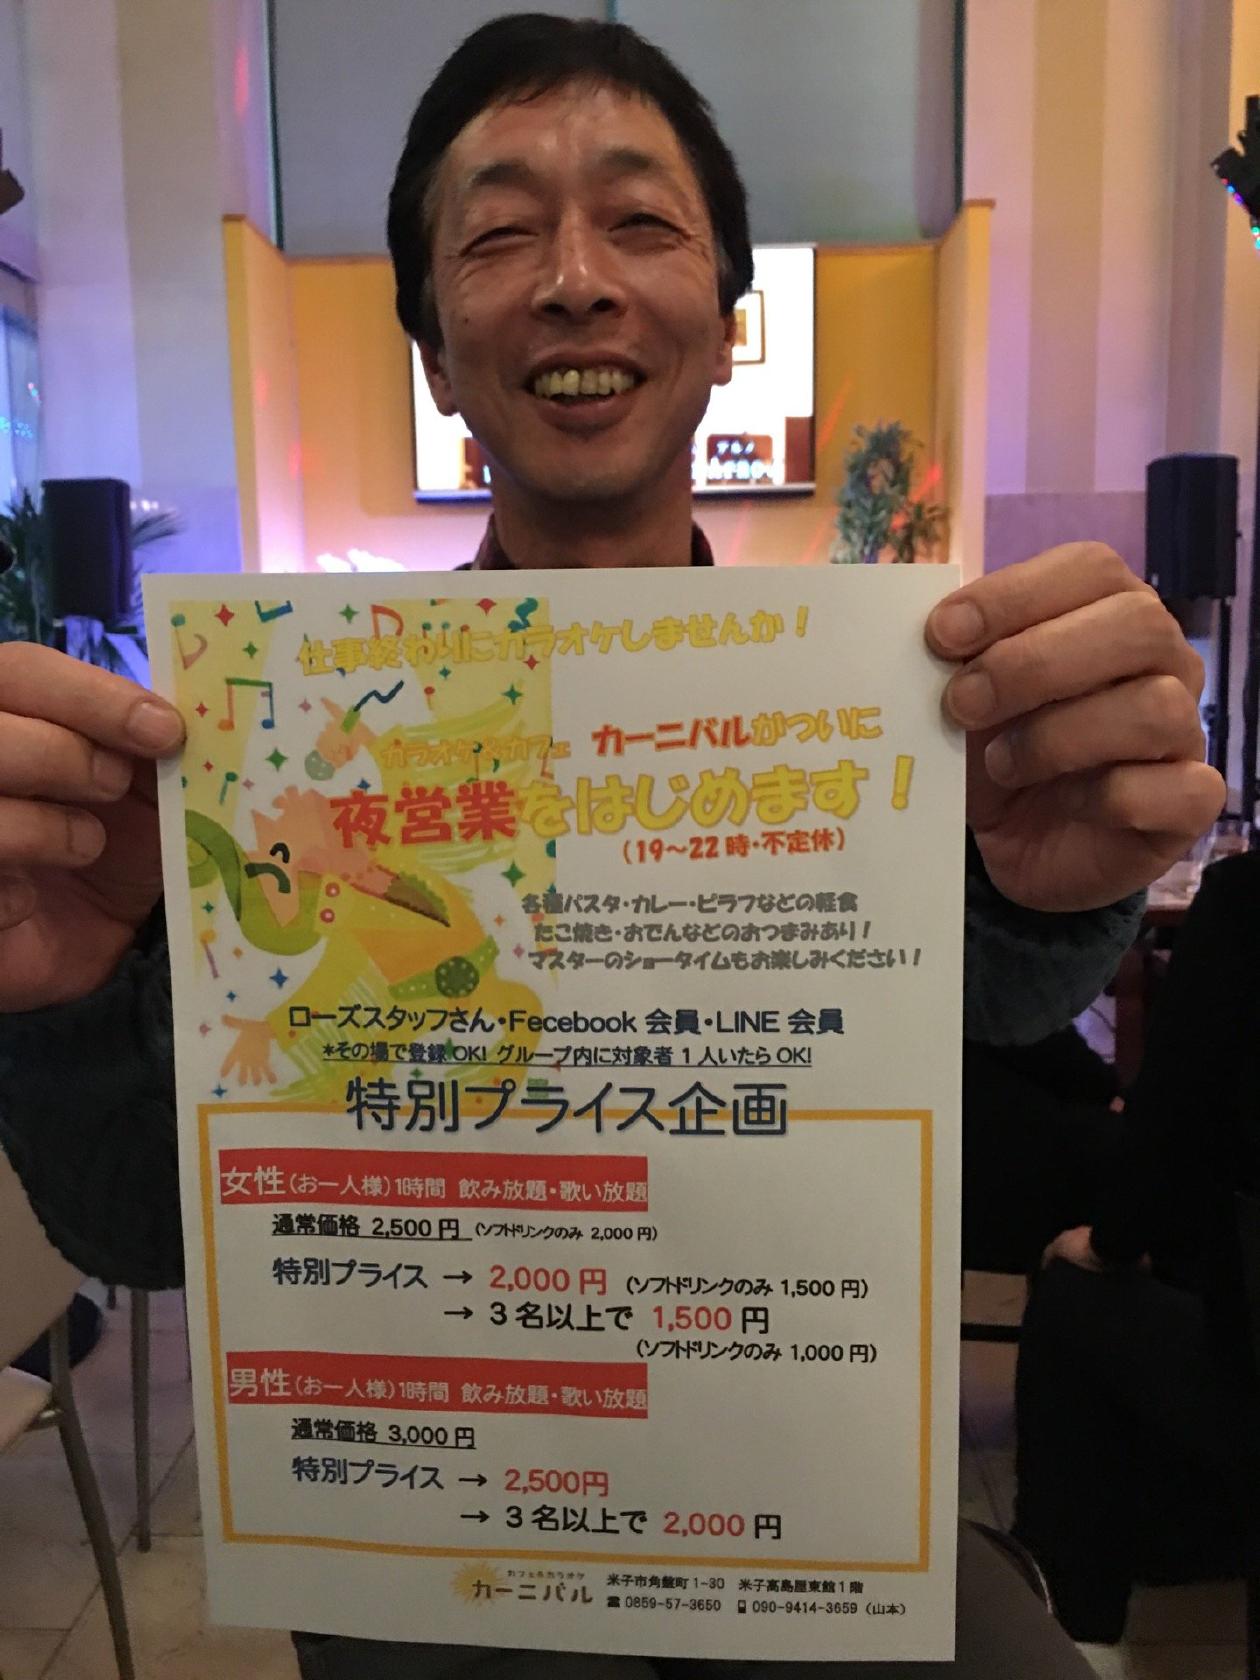 仕事終わりにカラオケしませんか！
カラオケ&カフェ カーニバルがついに
夜営業をはじめます！
（19～22時・不定休）
各種パスタ・カレー・ピラフなどの軽食
たこ焼き・おでんなどのおつまみあり！
マスターのショータイムもお楽しみください！
ローズスタッフさん・Fecebook 会員・LINE 会員
*その場で登録OK! グループ内に対象者1人いたらOK!
特別プライス企画
女性（お一人様）1時間 飲み放題・歌い放題
通常価格 2,500円 （ソフトドリンクのみ 2,000円）
特別プライス → 2,000円 （ソフトドリンクのみ 1,500円）
→ 3名以上で 1,500円
（ソフトドリンクのみ 1,000円）
男性（お一人様）1時間 飲み放題・歌い放題
通常価格 3,000円
特別プライス → 2,500円
→ 3名以上で 2,000円
カフェ&カラオケ
カーニバル
米子市角盤町1-30 米子高島屋東館1階
☎ 0859-57-3650 📱 090-9414-3659（山本）